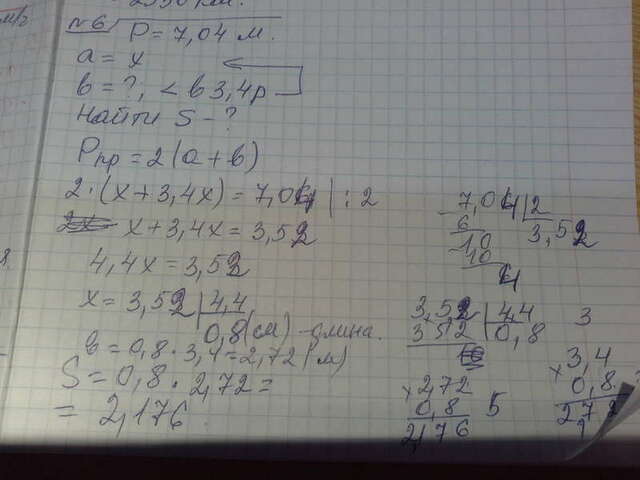 = 2550 км.
№6 P = 7,04 м.
a = x
b = ?, < в 3,4 р
Найти S - ?
Pпр = 2(a + b)
2 · (x + 3,4x) = 7,04 | : 2
x + 3,4x = 3,52
4,4x = 3,52
x = 3,52 | 4,4
0,8 (см) - длина.
b = 0,8 · 3,4 = 2,72 (м)
S = 0,8 · 2,72 =
= 2,176
7,04 | 2
6 3,52
10
10
4
3,52 | 4,4
352 0,8
3
× 2,72
0,8
2,176
5
× 3,4
0,8
272